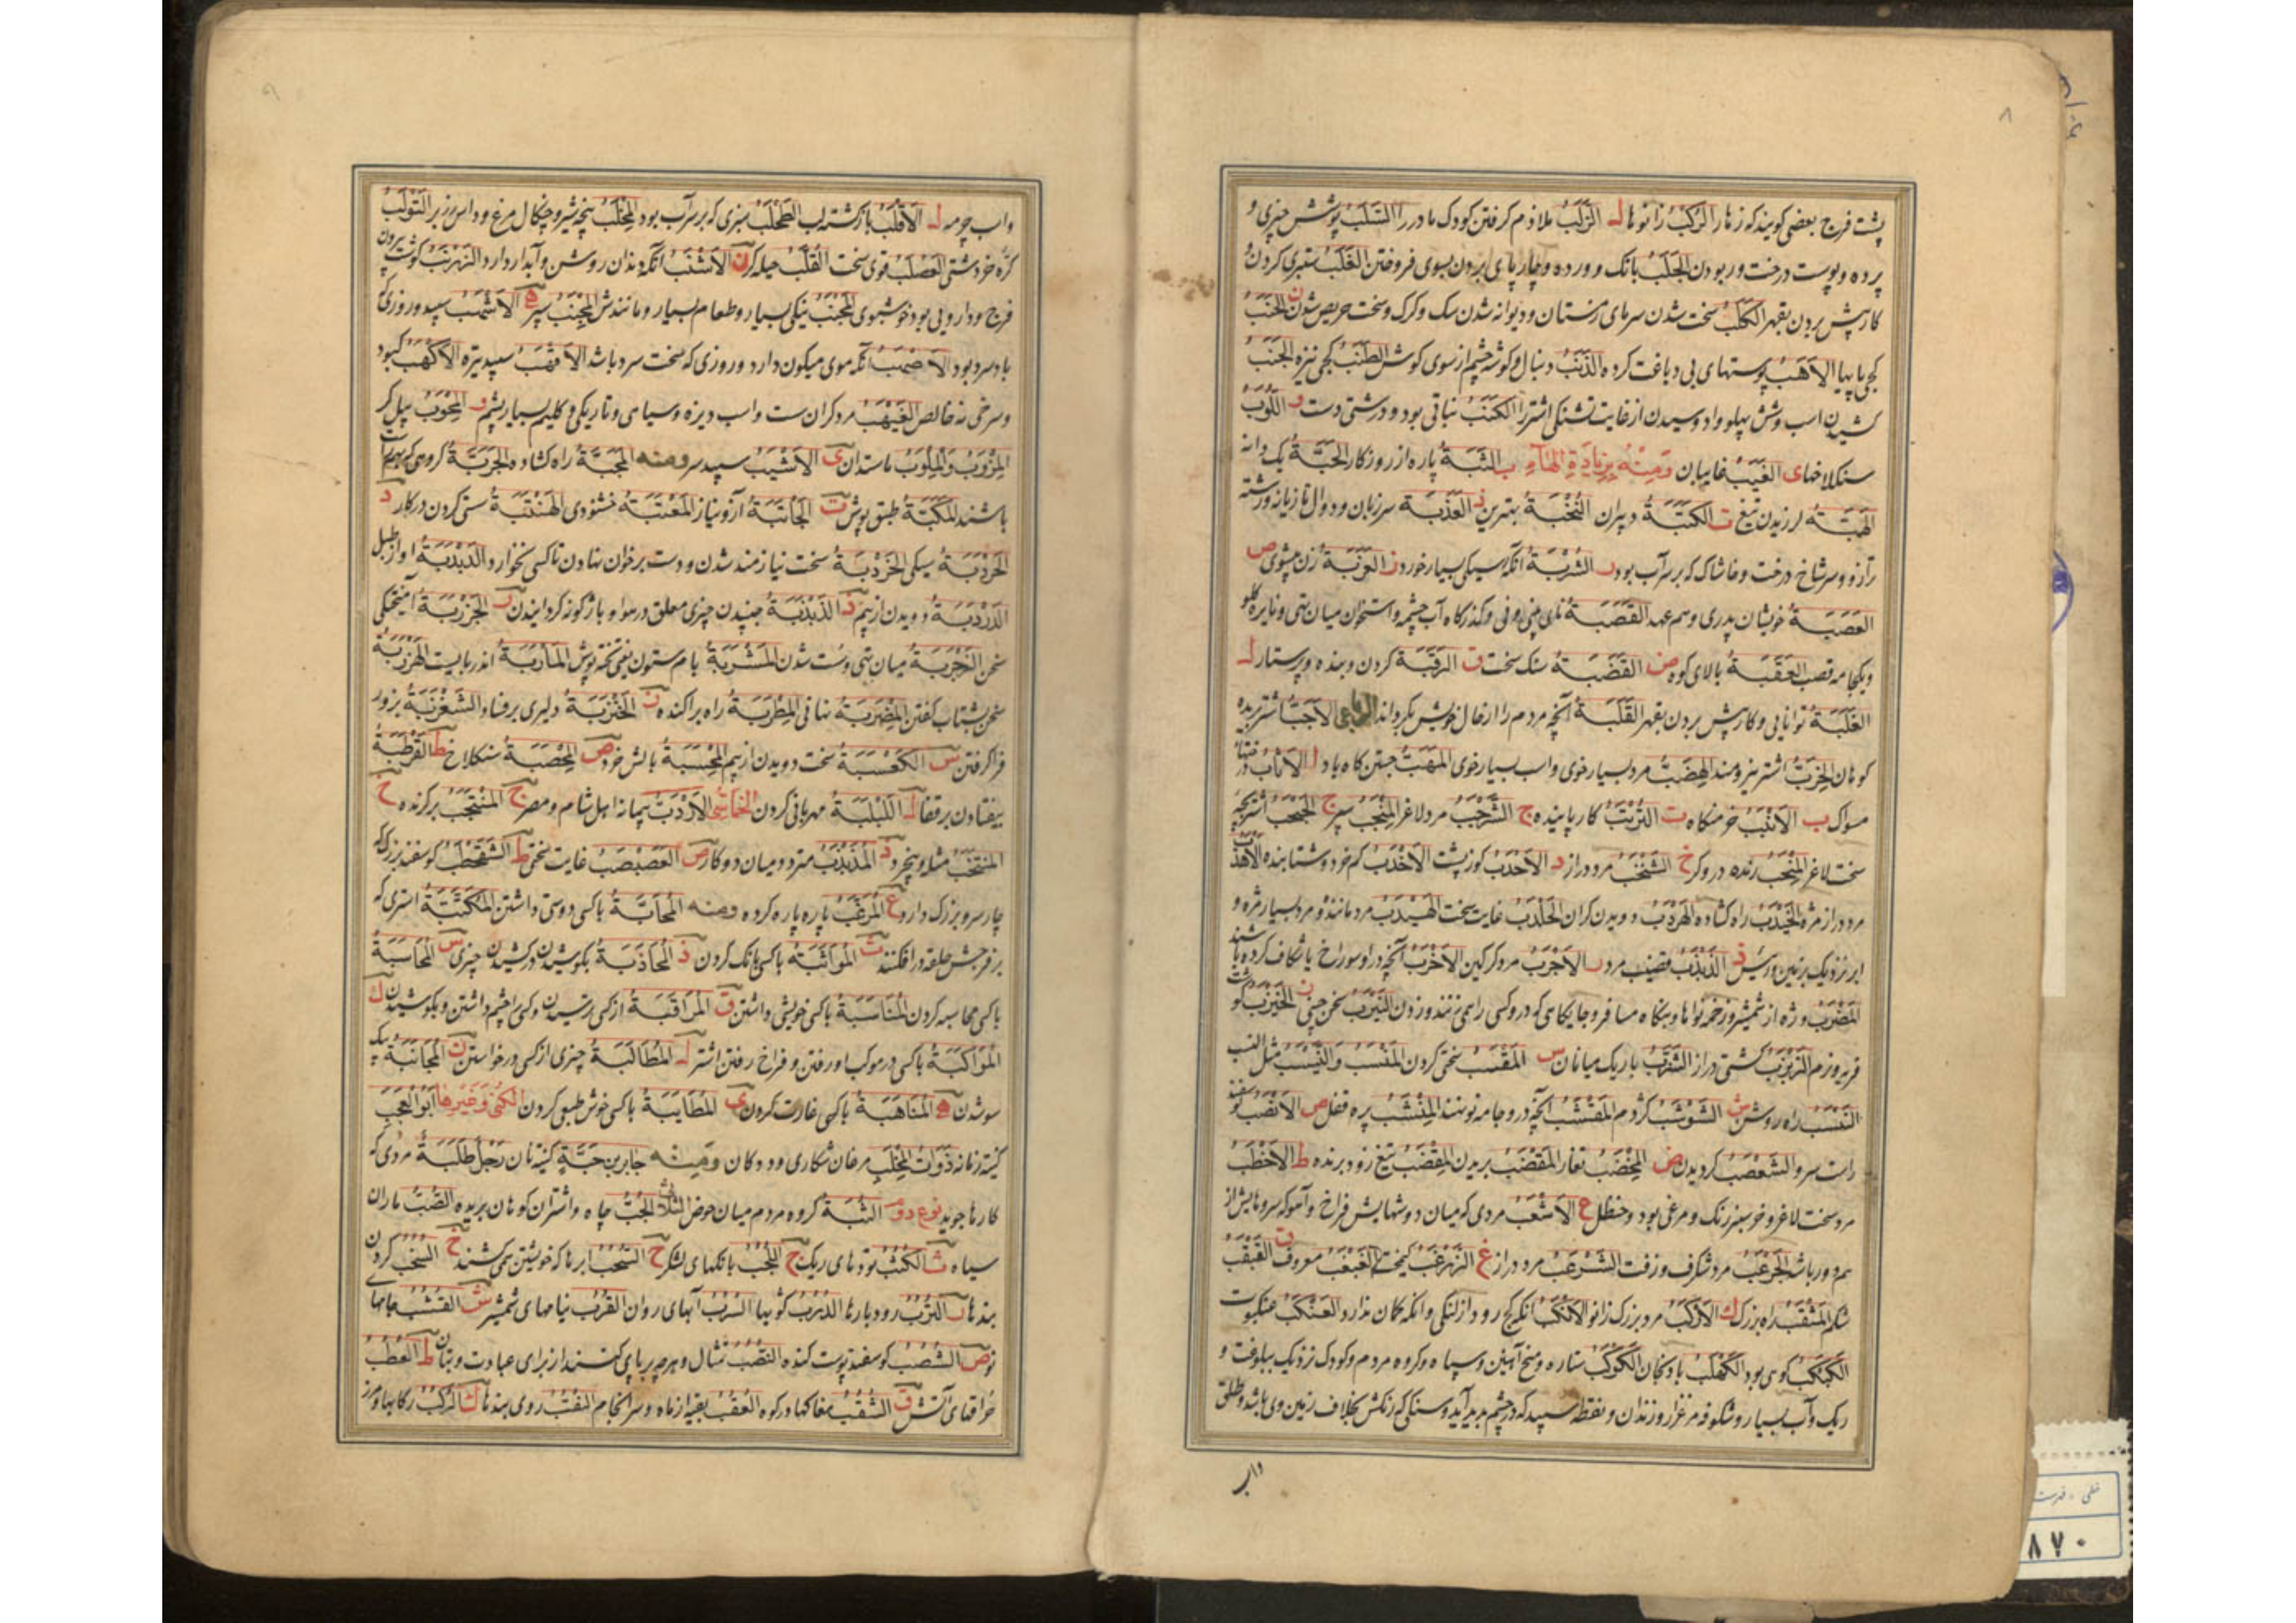 ۸
پشت فرج بعضی کویند که زهار الرَّکَبُ زانوها ل الزَّلَبُ ملازم کرفتن کودک مادر را السَّلَبُ پوشش چیزی و
پرده و پوست درخت و ربودن الجَلَبُ بانک و ورده و چارپای بردن بسوی فروختن الغَلَبُ ستبری کردن و
کار پیش بردن بقهر الکَلَبُ سخت شدن سرمای زمستان و دیوانه شدن سک و کرک و سخت حریص شدن ن الحَنَبُ
کجی پایها الاَهَبُ پوستهای بی دباغت کرده الذَّنَبُ دنبال و کوشه چشم از سوی کوش الطَّنَبُ کجی نیزه الجَنَبُ
کشیدن اسب و شش پهلو وادوسیدن از غایت تشنکی اشتر را الکَنَبُ نباتی بود و درشتی دست و اللُّوَبُ
سنکلاخها ی الغَیَبُ غایبان وَمِنْهُ بِزِیَادَةِ الهَآءِ ب الثَّبَةُ پاره از روزکار الحَبَّةُ یک دانه
الهَبَّةُ لرزیدن تیغ ت الکَتَبَةُ دبیران النُّخَبَةُ بهترین ذ العَذَبَةُ سر زبان و دوال تازیانه و رشته
ترازو و سر شاخ درخت و خاشاک که بر سر آب بود ر الشُّرَبَةُ آنکه سیکی بسیار خورد ز العَزَبَةُ زن بیشوی ص
العَصَبَةُ خویشان پدری و هم عهد القَصَبَةُ نای بینی و نی و کذرکاه آب چشمه و استخوان میان تهی و نایره کلو
و یکجامه قصب العَقَبَةُ بالای کوه ض القَضَبَةُ سنک سخت ق الرَّقَبَةُ کردن و بنده و پرستار ل
الغَلَبَةُ توانایی و کار پیش بردن بقهر القَلَبَةُ آنچه مردم را از حال خویش بکرداند الرباعی الاَجَبُّ اشتر بریده
کوهان الخِرَبُّ اشتر نیرومند الهِضَبُّ مرد بسیار خوی و اسب بسیار خوی المَهَبُّ جستن کاه باد ا الاَثْاَبُ درختها
مسواک ب الاَنْبَبُ خرمنکاه ت التُّرْتَبُ کار پاینده ج الشَّرْجَبُ مرد لاغر المِنْجَبُ سپر ج الجَحْجَبُ اشتر بچه
سخت لاغر المِنْجَبُ رنده درودکر خ الشَّنْخَبُ مرد دراز د الاَحْدَبُ کوز پشت الاَخْدَبُ کم خرد و شتابنده الاَهْدَبُ
مرد دراز مژه الخَیْدَبُ راه کشاده الهَرْدَبُ دویدن کران الخَلْدَبُ غایت سخت الهَیْدَبُ مرد مانده و مرد بسیار مژه و
ابر نزدیک بزمین رسیده ذ الذَّبْذَبُ قضیب مرد ر الاَجْرَبُ مرد کرکین الاَخْرَبُ آنچه در او سوراخ یا شکاف کرده باشند
المَضْرَبُ وژه از شمشیر و زخمه نواها و بنکاه مسافر و جایکاهی که در و کسی را همی زنند و زدن النَّیْرَبُ سخن چینی ز الخَیْزَبُ کوشت
فربه و نرم الزَّبْزَبُ کشتی دراز الشُّوزَبُ باریک میانان س المَقْسَبُ سختی کردن المَنْسَبُ و النَّیْسَبُ مثل النسب
النَّیْسَبُ راه روشن ش الشَّوْشَبُ کژدم المَقْشَبُ آنچه در و جامه نو نهند المِنْشَبُ پره قفل ص الاَنْصَبُ کوسفند
راست سرو الشَّعْصَبُ کردیدن ض المِخْضَبُ تغار المَقْضَبُ بریدن المِقْضَبُ تیغ زود برنده ط الاَخْطَبُ
مرد سخت لاغر و خر سبز رنک و مرغی بود و حنظل ع الاَشْعَبُ مردی که میان دوشهایش فراخ و آهو که سروهایش از
هم دور باشد الجَرْعَبُ مرد شکرف و زفت الشَّرْعَبُ مرد دراز غ الزَّهْزَغَبُ کیمخت الغَبْغَبُ معروف ق القَبْقَبُ
شکم المَثْقَبُ راه بزرک ک الاَرْکَبُ مرد بزرک زانو الاَنْکَبُ انکه کج رود از لنکی و انکه کمان ندارد العَنْکَبُ عنکبوت
الکَبْکَبُ کوهی بود الکَهْلَبُ بادنجان الکَوْکَبُ ستاره و میخ آهنین و سپاه و کروه مردم و کودک نزدیک ببلوغت و
ریک و آب بسیار و شکوفه مرغزار و زندان و نقطه سپید که در چشم پدید آید و سنکی که رنکش بخلاف زمین وی باشد و طلق
واسب
۹
واسب چرمه ل الاَقْلَبُ بازکشته لب الطُّحْلَبُ سبزی که بر سر آب بود المِخْلَبُ پنجه شیر و چنکال مرغ و داس رزبر التَّوْلَبُ
کره خر دشتی العَصْلَبُ قوی سخت القُلَّبُ حیله کر ن الاَشْنَبُ انکه دندان روشن و آبدار دارد الزَّرْنَبُ کوشت بیرون
فرج و دارویی بود خوشبوی المَجْنَبُ نیکی بسیار و طعام بسیار و مانندش المِجْنَبُ سپر ه الاَشْهَبُ سپید و روزی که
باد سرد بود الاَصْهَبُ آنکه موی میکون دارد و روزی که سخت سرد باشد الاَقْهَبُ سپید تیره الاَکْهَبُ کبود
و سرخی نه خالص الغَیْهَبُ مرد کران ست و اسب دیزه و سیاهی و تاریکی و کلیم بسیار پشم و المِجْوَبُ بیل کر
المِرْوَبُ وَالمِلْوَبُ ماستدان ی الاَشْیَبُ سپید سر ومنه المَجَبَّةُ راه کشاده الجَرَبَّةُ کروهی که بهم راست
باشند المِکَبَّةُ طبق پوش ت الجَاتَبَةُ آزو نیاز المَعْتَبَةُ خشنودی الهَنْتَبَةُ سستی کردن در کار د
الخَرْدَبَةُ سبکی الجَرْدَبَةُ سخت نیازمند شدن و دست بر خوان نهادن تا کسی نخورد الدَّبْدَبَةُ آواز طبل
الدَّرْدَبَةُ دویدن از بیم ذ الذَّبْذَبَةُ جنبیدن چیزی معلق در هوا و باژکونه کردانیدن ر الجَزْرَبَةُ آمیختکی
سخن الزَّجْرَبَةُ میان تهی و سست شدن المَشْرَبَةُ بام ستون یعنی تخته پوش المَاْرَبَةُ اندربایست الهَزْرَبَةُ
سخن بشتاب کفتن المَضْرَبَةُ نهانی المَطْرَبَةُ راه پراکنده ز الخَنْزَبَةُ دلیری بر فساد الشَّغْزَبَةُ بزور
فرا کرفتن س الکَعْسَبَةُ سخت دویدن از بیم المِحْسَبَةُ بالش خرد ص المَحْصَبَةُ سنکلاخ ط القَرْطَبَةُ
بیفتادن بر قفا ل اللَّبْلَبَةُ مهربانی کردن الخماسی الاَرْدَبُّ پیمانه اهل شام و مصر ج المُنْتَجَبُ برکزیده خ
المُنْتَخَبُ مثله و پنجرد ذ المُذَبْذَبُ متردد میان دو کار ص العَصَبْصَبُ غایت سختی ط الشَّقَحْطَبُ کوسفند بزرک که
چهار سرو بزرک دارد ع المُرَعَّبُ پاره پاره کرده ومنه المُحَابَّةُ با کسی دوستی داشتن المُکَتَّبَةُ استری که
بر فرجش حلقه در افکنند ث المُوَاثَبَةُ با کسی بانک کردن ذ المُجَاذَبَةُ بکوشیدن در کشیدن چیزی س المُحَاسَبَةُ
با کسی محاسبه کردن المُنَاسَبَةُ با کسی خویشی داشتن ق المُرَاقَبَةُ از کسی ترسیدن و کسی را چشم داشتن و بکوشیدن ک
المُوَاکَبَةُ با کسی در موکب اورفتن و فراخ رفتن اشتر ل المُطَالَبَةُ چیزی از کسی درخواستن ن المُجَانَبَةُ بیک
سو شدن ه المُنَاهَبَةُ با کسی غارت کردن ی المُطَایَبَةُ با کسی خوش طبعی کردن الکُنَی وَغَیْرِهَا اَبُوالعَجَبِ
کنیة زمانه ذَوَاتُ المِخْلَبِ مرغان شکاری و ددکان وَمِنْهُ جابر بن حَبَّةٍ کنیه نان رَجُلٌ طَلَبَةٌ مردی که
کارها جوید نوع دوم الثُّبَةُ کروه مردم میان حوض الثلاثی الجُبُّ چاه و اشتران کوهان بریده الصُّبُّ ماران
سیاه ث الکُثُبُ تودهای ریک ج اللُّجُبُ بانکهای لشکر ح السُّحُبُ ابرها که خویشتن می کشند خ السُّخُبُ کردن
بندها ر التُّرُبُ رودبارها الدُّرُبُ کویها السُّرُبُ آبهای روان القُرُبُ نیامهای شمشیر ش القُشُبُ جامهای
نو ص الشُّصُبُ کوسفند پوست کنده النُّصُبُ تمثال و هرچه برپای کنند از برای عبادت و بتان ط العُطُبُ
خراقتهای آتش ق الثُّقُبُ مغاکها در کوه العُقُبُ بقیه از ماه و سرانجام النُّقُبُ روی بندها ک الرُّکُبُ رکابها و مرز
خطی - فهرست
۸۷۰